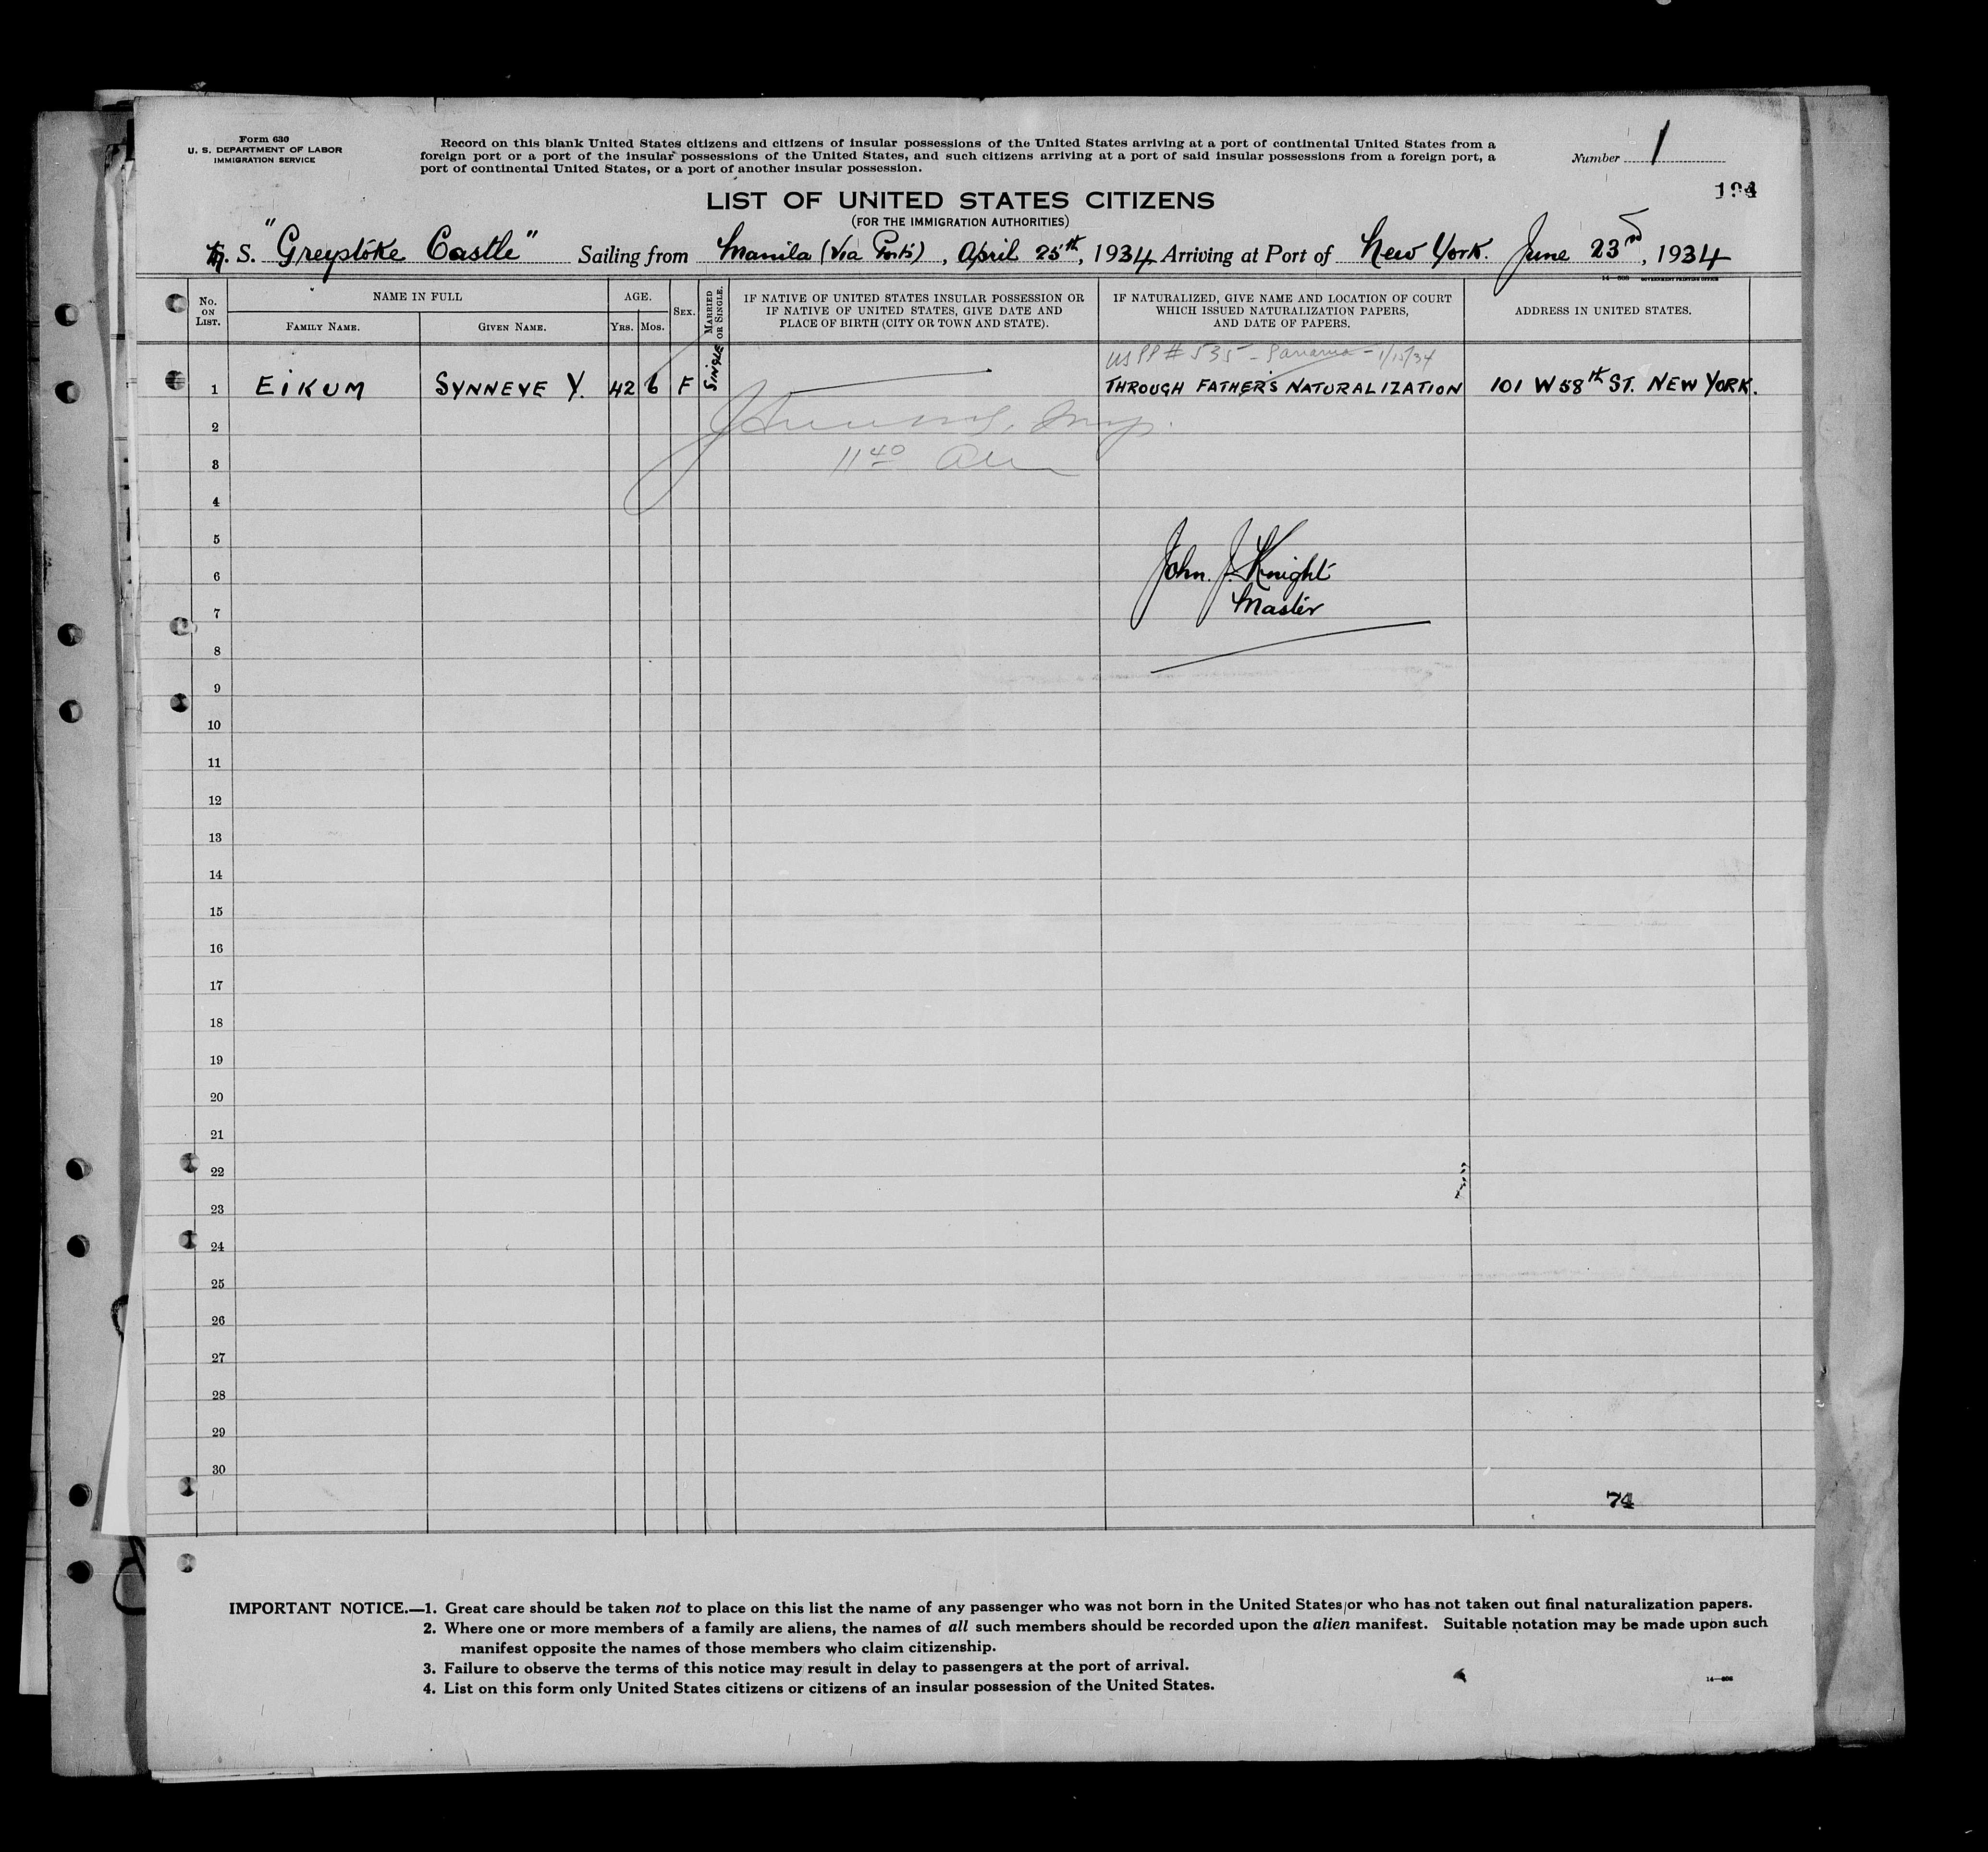 Form 630
U. S. DEPARTMENT OF LABOR
IMMIGRATION SERVICE
Record on this blank United States citizens and citizens of insular possessions of the United States arriving at a port of continental United States from a
foreign port or a port of the insular possessions of the United States, and such citizens arriving at a port of said insular possessions from a foreign port, a
port of continental United States, or a port of another insular possession.
Number 1
194
LIST OF UNITED STATES CITIZENS
(FOR THE IMMIGRATION AUTHORITIES)
S. "Greystoke Castle" Sailing from Manila (Via Ports), April 25th, 1934 Arriving at Port of New York. June 23rd, 1934
14—608 GOVERNMENT PRINTING OFFICE
No. ON LIST.
NAME IN FULL
FAMILY NAME.
GIVEN NAME.
AGE.
YRS.
MOS.
SEX.
MARRIED OR SINGLE.
IF NATIVE OF UNITED STATES INSULAR POSSESSION OR
IF NATIVE OF UNITED STATES, GIVE DATE AND
PLACE OF BIRTH (CITY OR TOWN AND STATE).
IF NATURALIZED, GIVE NAME AND LOCATION OF COURT
WHICH ISSUED NATURALIZATION PAPERS,
AND DATE OF PAPERS.
ADDRESS IN UNITED STATES.
US PP # 535 - Panama - 1/15/34
1 EIKUM SYNNEVE Y. 42 6 F SINGLE THROUGH FATHER'S NATURALIZATION 101 W 58th ST. NEW YORK.
2
3 11 40 AM
4
5
6 John. J. Knight
7 Master
8
9
10
11
12
13
14
15
16
17
18
19
20
21
22
23
24
25
26
27
28
29
30
74
IMPORTANT NOTICE.—1. Great care should be taken not to place on this list the name of any passenger who was not born in the United States or who has not taken out final naturalization papers.
2. Where one or more members of a family are aliens, the names of all such members should be recorded upon the alien manifest. Suitable notation may be made upon such
manifest opposite the names of those members who claim citizenship.
3. Failure to observe the terms of this notice may result in delay to passengers at the port of arrival.
4. List on this form only United States citizens or citizens of an insular possession of the United States.
14—608